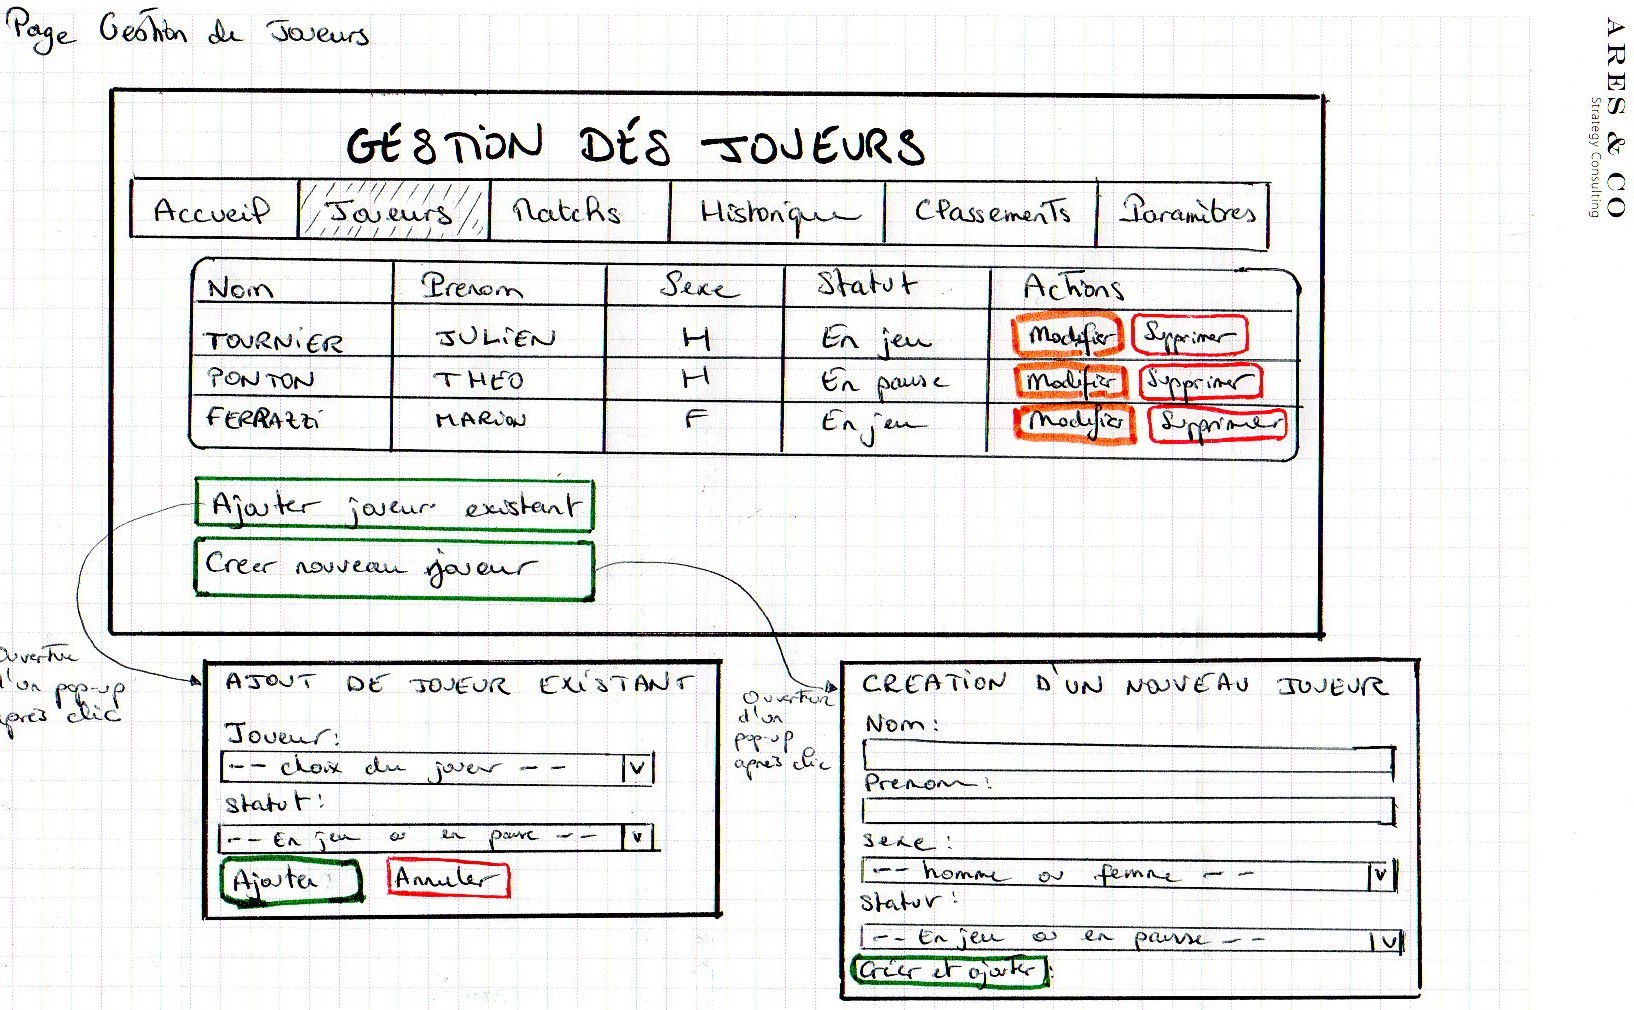 Page Gestion de Joueurs
ARES & CO
Strategy Consulting
GESTION DES JOUEURS
Accueil Joueurs Matchs Historique Classements Paramètres
Nom Prenom Sexe Statut Actions
TOURNIER JULIEN H En jeu Modifier Supprimer
PONTON THEO H En pause Modifier Supprimer
FERRAZZI MARION F En jeu Modifier Supprimer
Ajouter joueur existant
Creer nouveau joueur
Ouverture
d'un pop-up
après clic
AJOUT DE JOUEUR EXISTANT
Joueur:
-- choix du joueur -- V
statut:
-- En jeu ou en pause -- V
Ajouter Annuler
Ouverture
d'un
pop-up
après clic
CREATION D'UN NOUVEAU JOUEUR
Nom:
Prenom:
sexe:
-- homme ou femme -- V
statut:
-- En jeu ou en pause -- V
Créer et ajouter